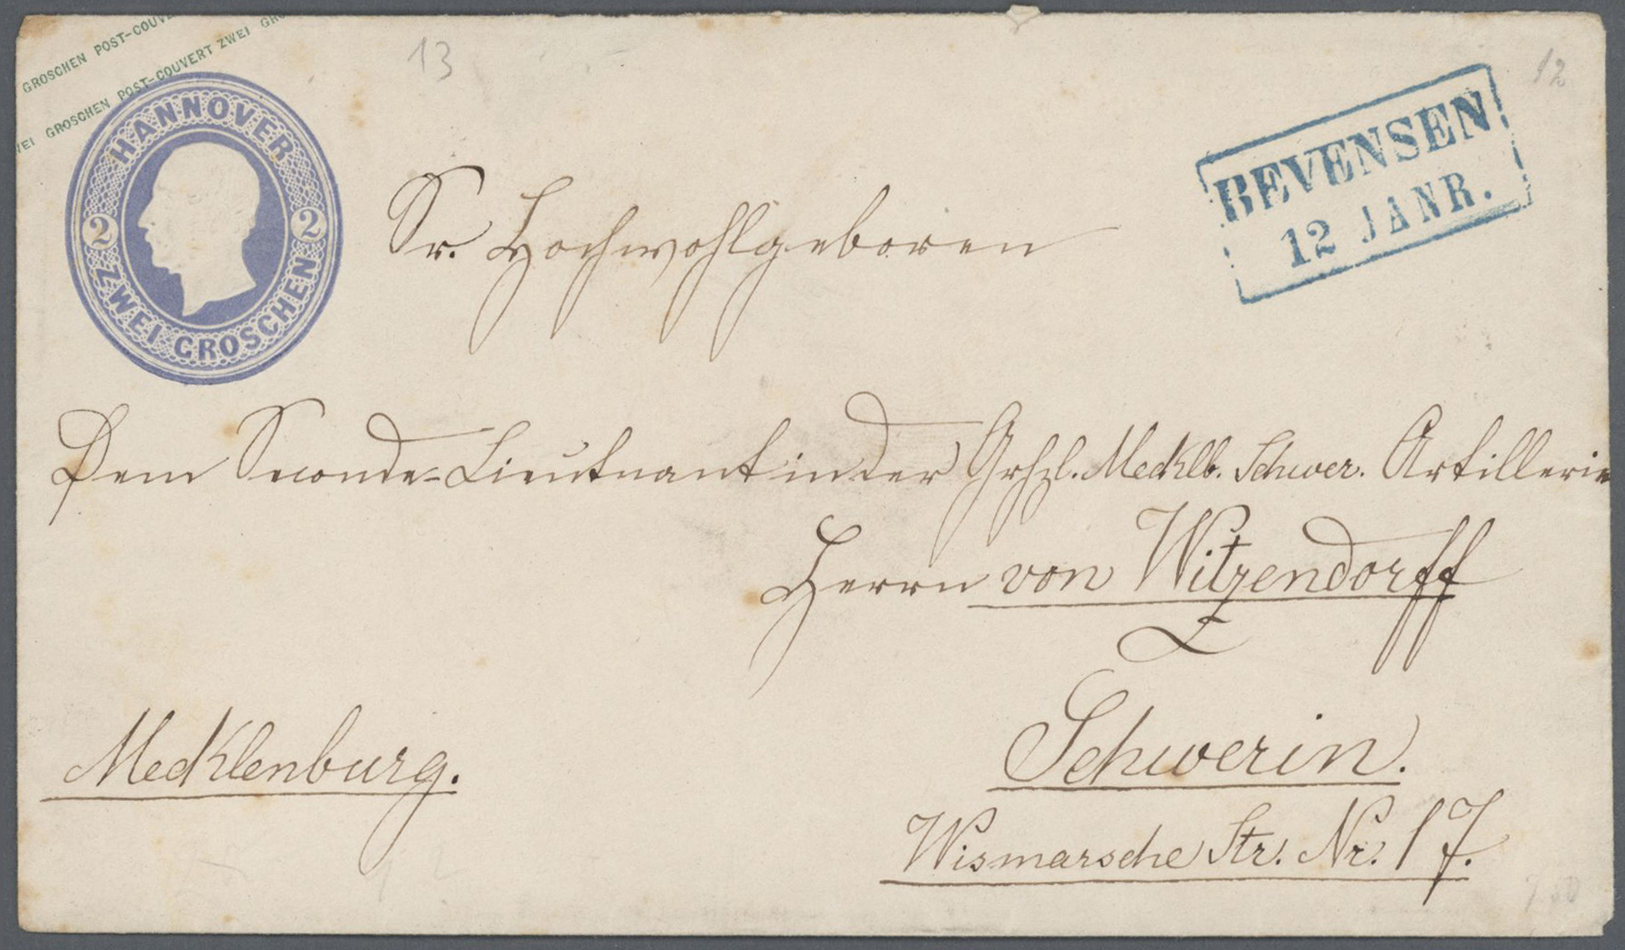 GROSCHEN POST-COUV
GROSCHEN POST-COUVERT ZWEI GR
HANNOVER
2 2
ZWEI GROSCHEN
13
12
BEVENSEN
12 JANR.
Sr. Hochwohlgeboren
Dem Seconde-Lieutnant in der Grhzl. Mecklb. Schwer. Artillerie
Herrn von Witzendorff
Schwerin.
Mecklenburg.
Wismarsche Str. Nr. 17.